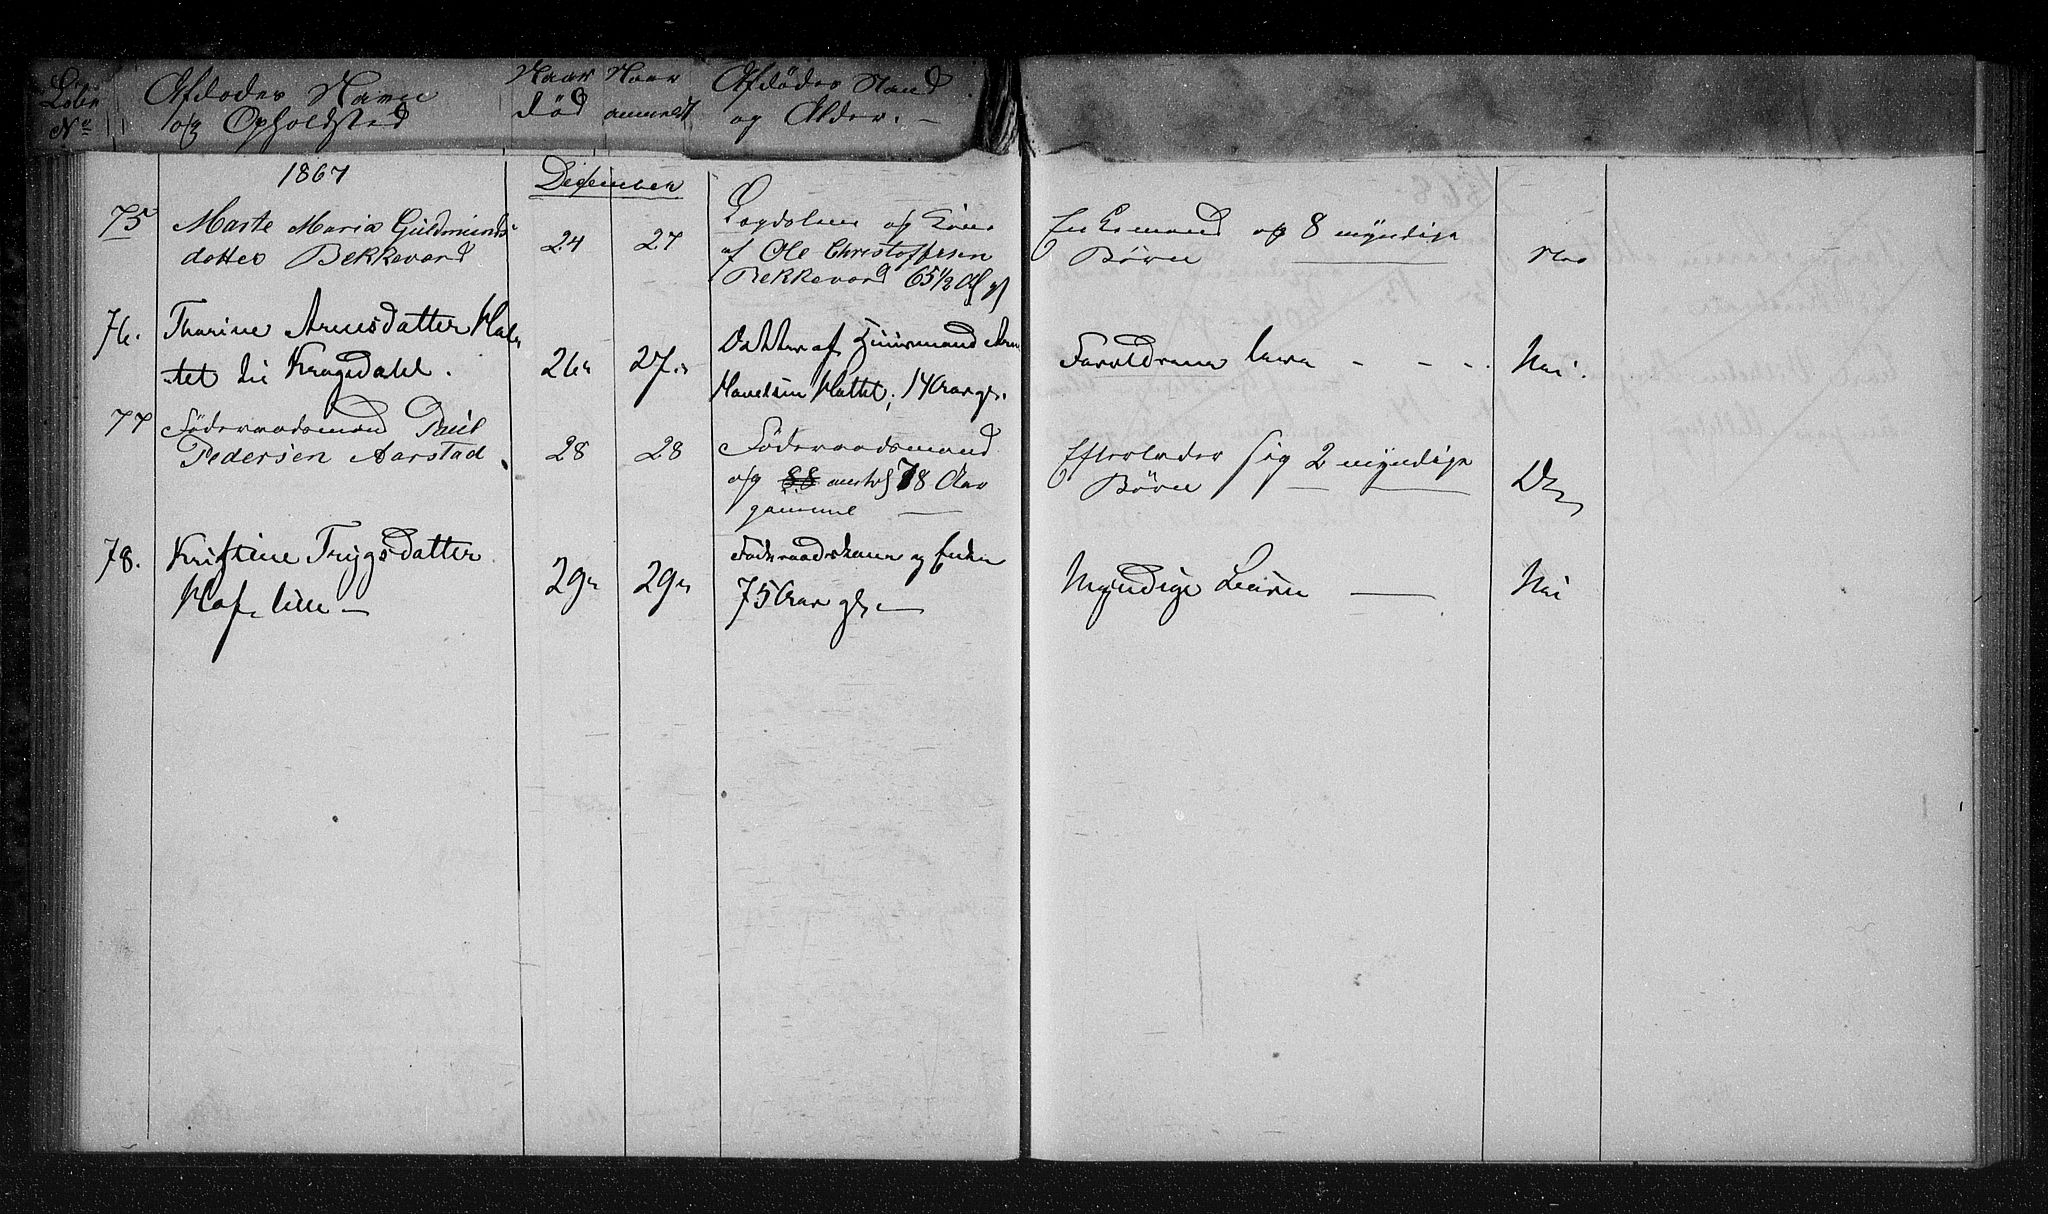 Løbe No
Afdødes Navn
og Opholdsted
Naar død
Naar anmeldt
Afdødes Stand
og Alder. –
1867
December
75
Marte Maria Guldmunds
datter Bekkevard
24
27
og Kone
af Ole Christoffersen
Bekkevard 65 1/2 Aar gl
Enkemand og 8 myndige
Børn
76.
Tharine Arnesdatter
tet
26.
27.
Datter af Huusmand Arne
14 Aar gl.
Foreldrene leve - - -
Nei.
77
Føderaadsmand Paul
Pedersen Aarstad
28
28
Føderaadsmand
og 88 78 Aar
gammel
Efterlader sig 2 myndige
Børn
78.
Kristine Trygsdatter
Haf lille –
29
29
Føderaadskone og Enke
75 Aar gl. –
Myndige Børn
Nei